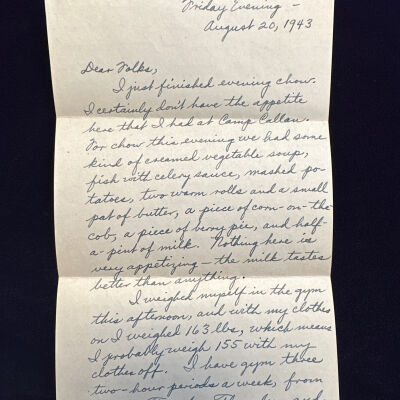 Friday Evening –
August 20, 1943
Dear Folks,
I just finished evening chow.
I certainly don't have the appetite
here that I had at Camp Callan.
For chow this evening we had some
kind of creamed vegetable soup,
fish with celery sauce, mashed po-
tatoes, two warm rolls and a small
pat of butter, a piece of corn-on-the-
cob, a piece of berry pie, and half-
a-pint of milk. Nothing here is
very appetizing – the milk tastes
better than anything.
I weighed myself in the gym
this afternoon, and with my clothes
on I weighed 163 lbs, which means
I probably weigh 155 with my
clothes off. I have gym three
two-hour periods a week, from
and